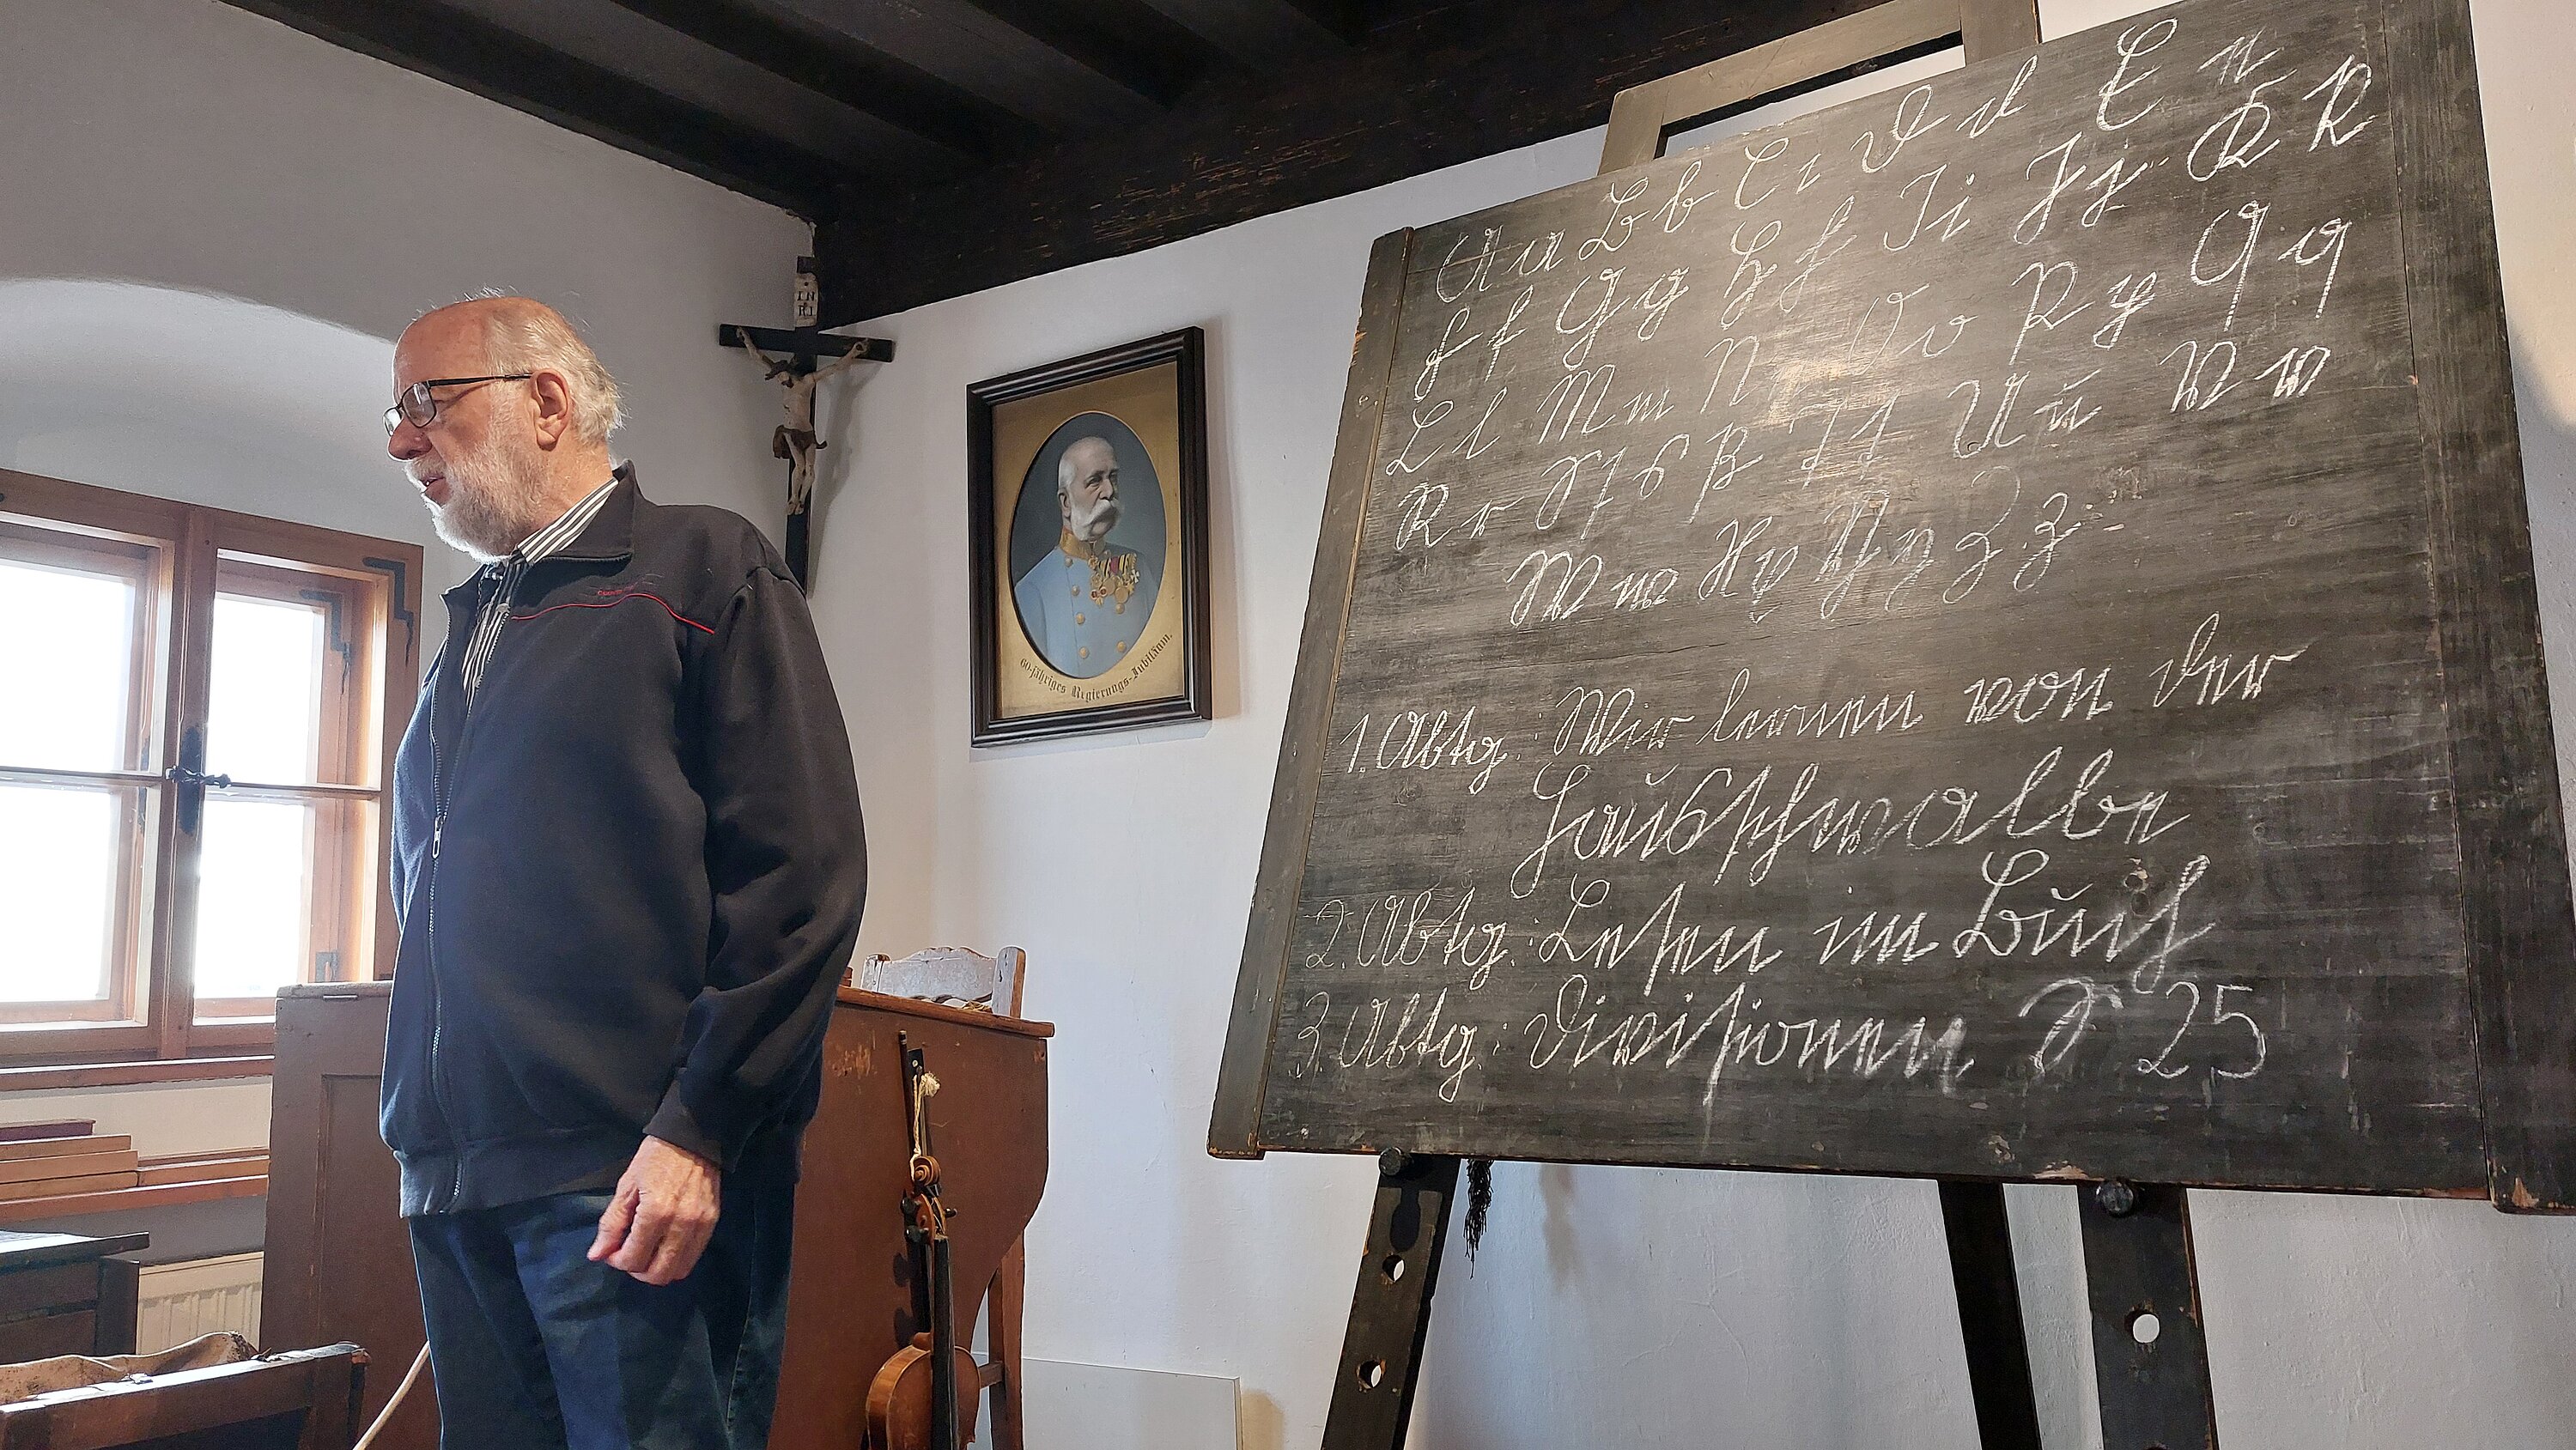 IN
RI
60-jähriges Regierungs-Jubiläum.
A a B b C c D d E e
F f G g H h I i J j K k
L l M m N n O o P p Q q
R r S ſ s ß T t U u V v
W w X x Y y Z z
1. Abtg.: Wir lernen von der
Hausſchwalbe
2. Abtg.: Leſen im Buch
3. Abtg.: Diviſionen S 25